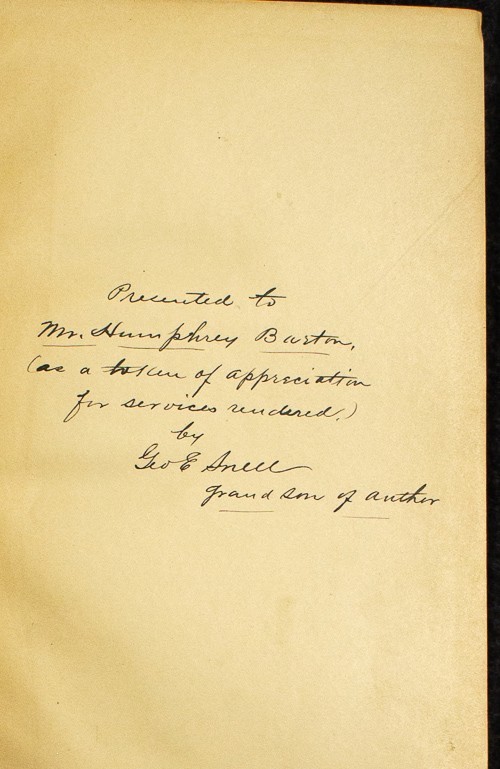 Presented to
Mr. Humphrey Barton,
(as a token of appreciation
for services rendered.)
by
Geo E Snell
grand son of author